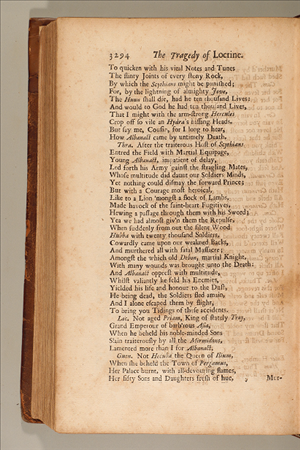 3294 The Tragedy of Locrine.
To quicken with his vital Notes and Tunes
The flinty Joints of every stony Rock,
By which the Scythians might be punished;
For, by the lightening of almighty Jove,
The Hunn shall die, had he ten thousand Lives:
And would to God he had ten thousand Lives,
That I might with the arm-strong Hercules
Crop off so vile an Hydra's hissing Heads.
But say me, Cousin, for I long to hear,
How Albanact came by untimely Death.
Thra. After the traiterous Host of Scythians
Entred the Field with Martial Equipage,
Young Albanact, impatient of delay,
Led forth his Army gainst the stragling Mates,
Whose multitude did daunt our Soldiers Minds,
Yet nothing could dismay the forward Prince;
But with a Courage most heroical,
Like to a Lion 'mongst a flock of Lambs,
Made havock of the faint-heart Fugitives,
Hewing a passage through them with his Sword;
Yea we had almost giv'n them the Repulse,
When suddenly from out the silent Wood
Hubba with twenty thousand Soldiers,
Cowardly came upon our weakned Backs,
And murthered all with fatal Massacre:
Amongst the which old Debon, martial Knight,
With many wounds was brought unto the Death:
And Albanact opprest with multitude,
Whilst valiantly he feld his Enemies,
Yielded his life and honour to the Dust.
He being dead, the Soldiers fled amain,
And I alone escaped them by flight,
To bring you Tidings of these accidents.
Loc. Not aged Priam, King of stately Troy,
Grand Emperour of barb'rous Asia,
When he beheld his noble-minded Sons
Slain traiterously by all the Mirmidons,
Lamented more than I for Albanact.
Guen. Not Hecuba the Queen of Ilium,
When she beheld the Town of Pergamus,
Her Palace burnt, with all-devouring flames,
Her fifty Sons and Daughters fresh of hue,